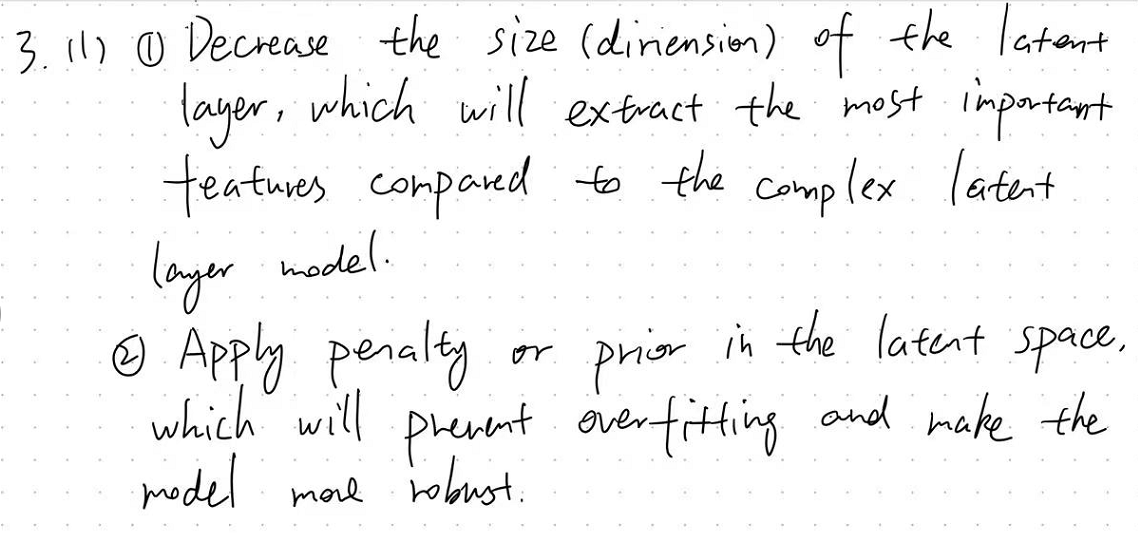 3. (1) ① Decrease the size (dimension) of the latent
layer, which will extract the most important
features compared to the complex latent
layer model.
② Apply penalty or prior in the latent space,
which will prevent overfitting and make the
model more robust.